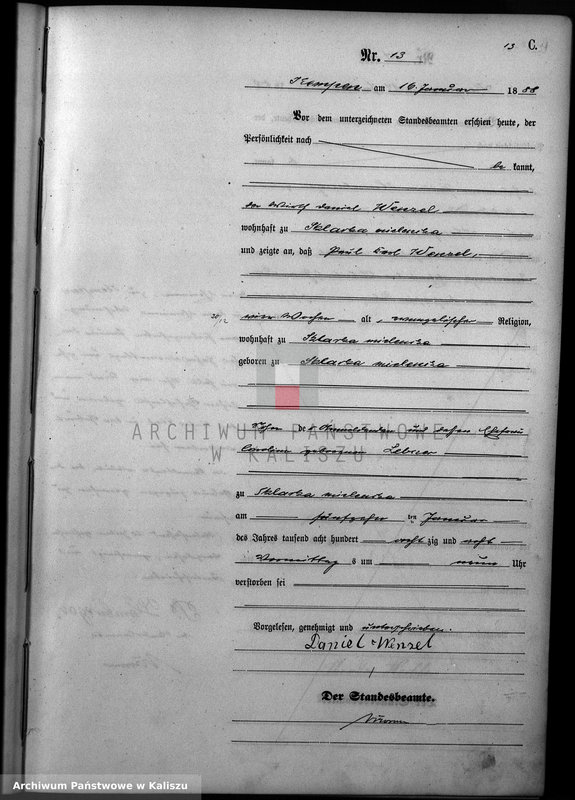 13 C.
Nr. 13
Kempen am 16 Januar 1888
Vor dem unterzeichneten Standesbeamten erschien heute, der
Persönlichkeit nach
be kannt,
der Wirth Daniel Wenzel
wohnhaft zu Sklarka mielenska
und zeigte an, daß Paul Karl Wenzel,
30/12 vier Wochen alt, evangelischer Religion,
wohnhaft zu Sklarka mielenska
geboren zu Sklarka mielenska
Sohn des Anmeldenden und dessen Ehefrau
ARCHIWUM PAŃSTWOWE
W KALISZU
Caroline geborenen
zu Sklarka mielenska
am fünfzehnten Januar
des Jahres tausend acht hundert achtzig und acht
Vormittags um neun Uhr
verstorben sei
Vorgelesen, genehmigt und unterschrieben.
Daniel Wenzel
Der Standesbeamte.
Archiwum Państwowe w Kaliszu